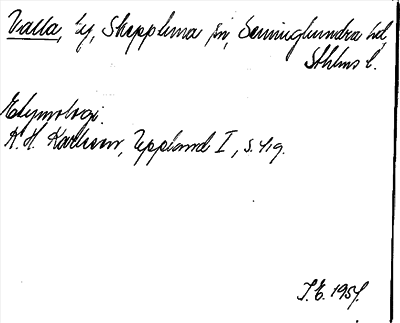 Valla, by, Skepptuna sn, Seminghundra hd,
Sthlms l.
Etymologi.
K. H. Karlsson, Uppland I, s. 419.
J.E. 1957.